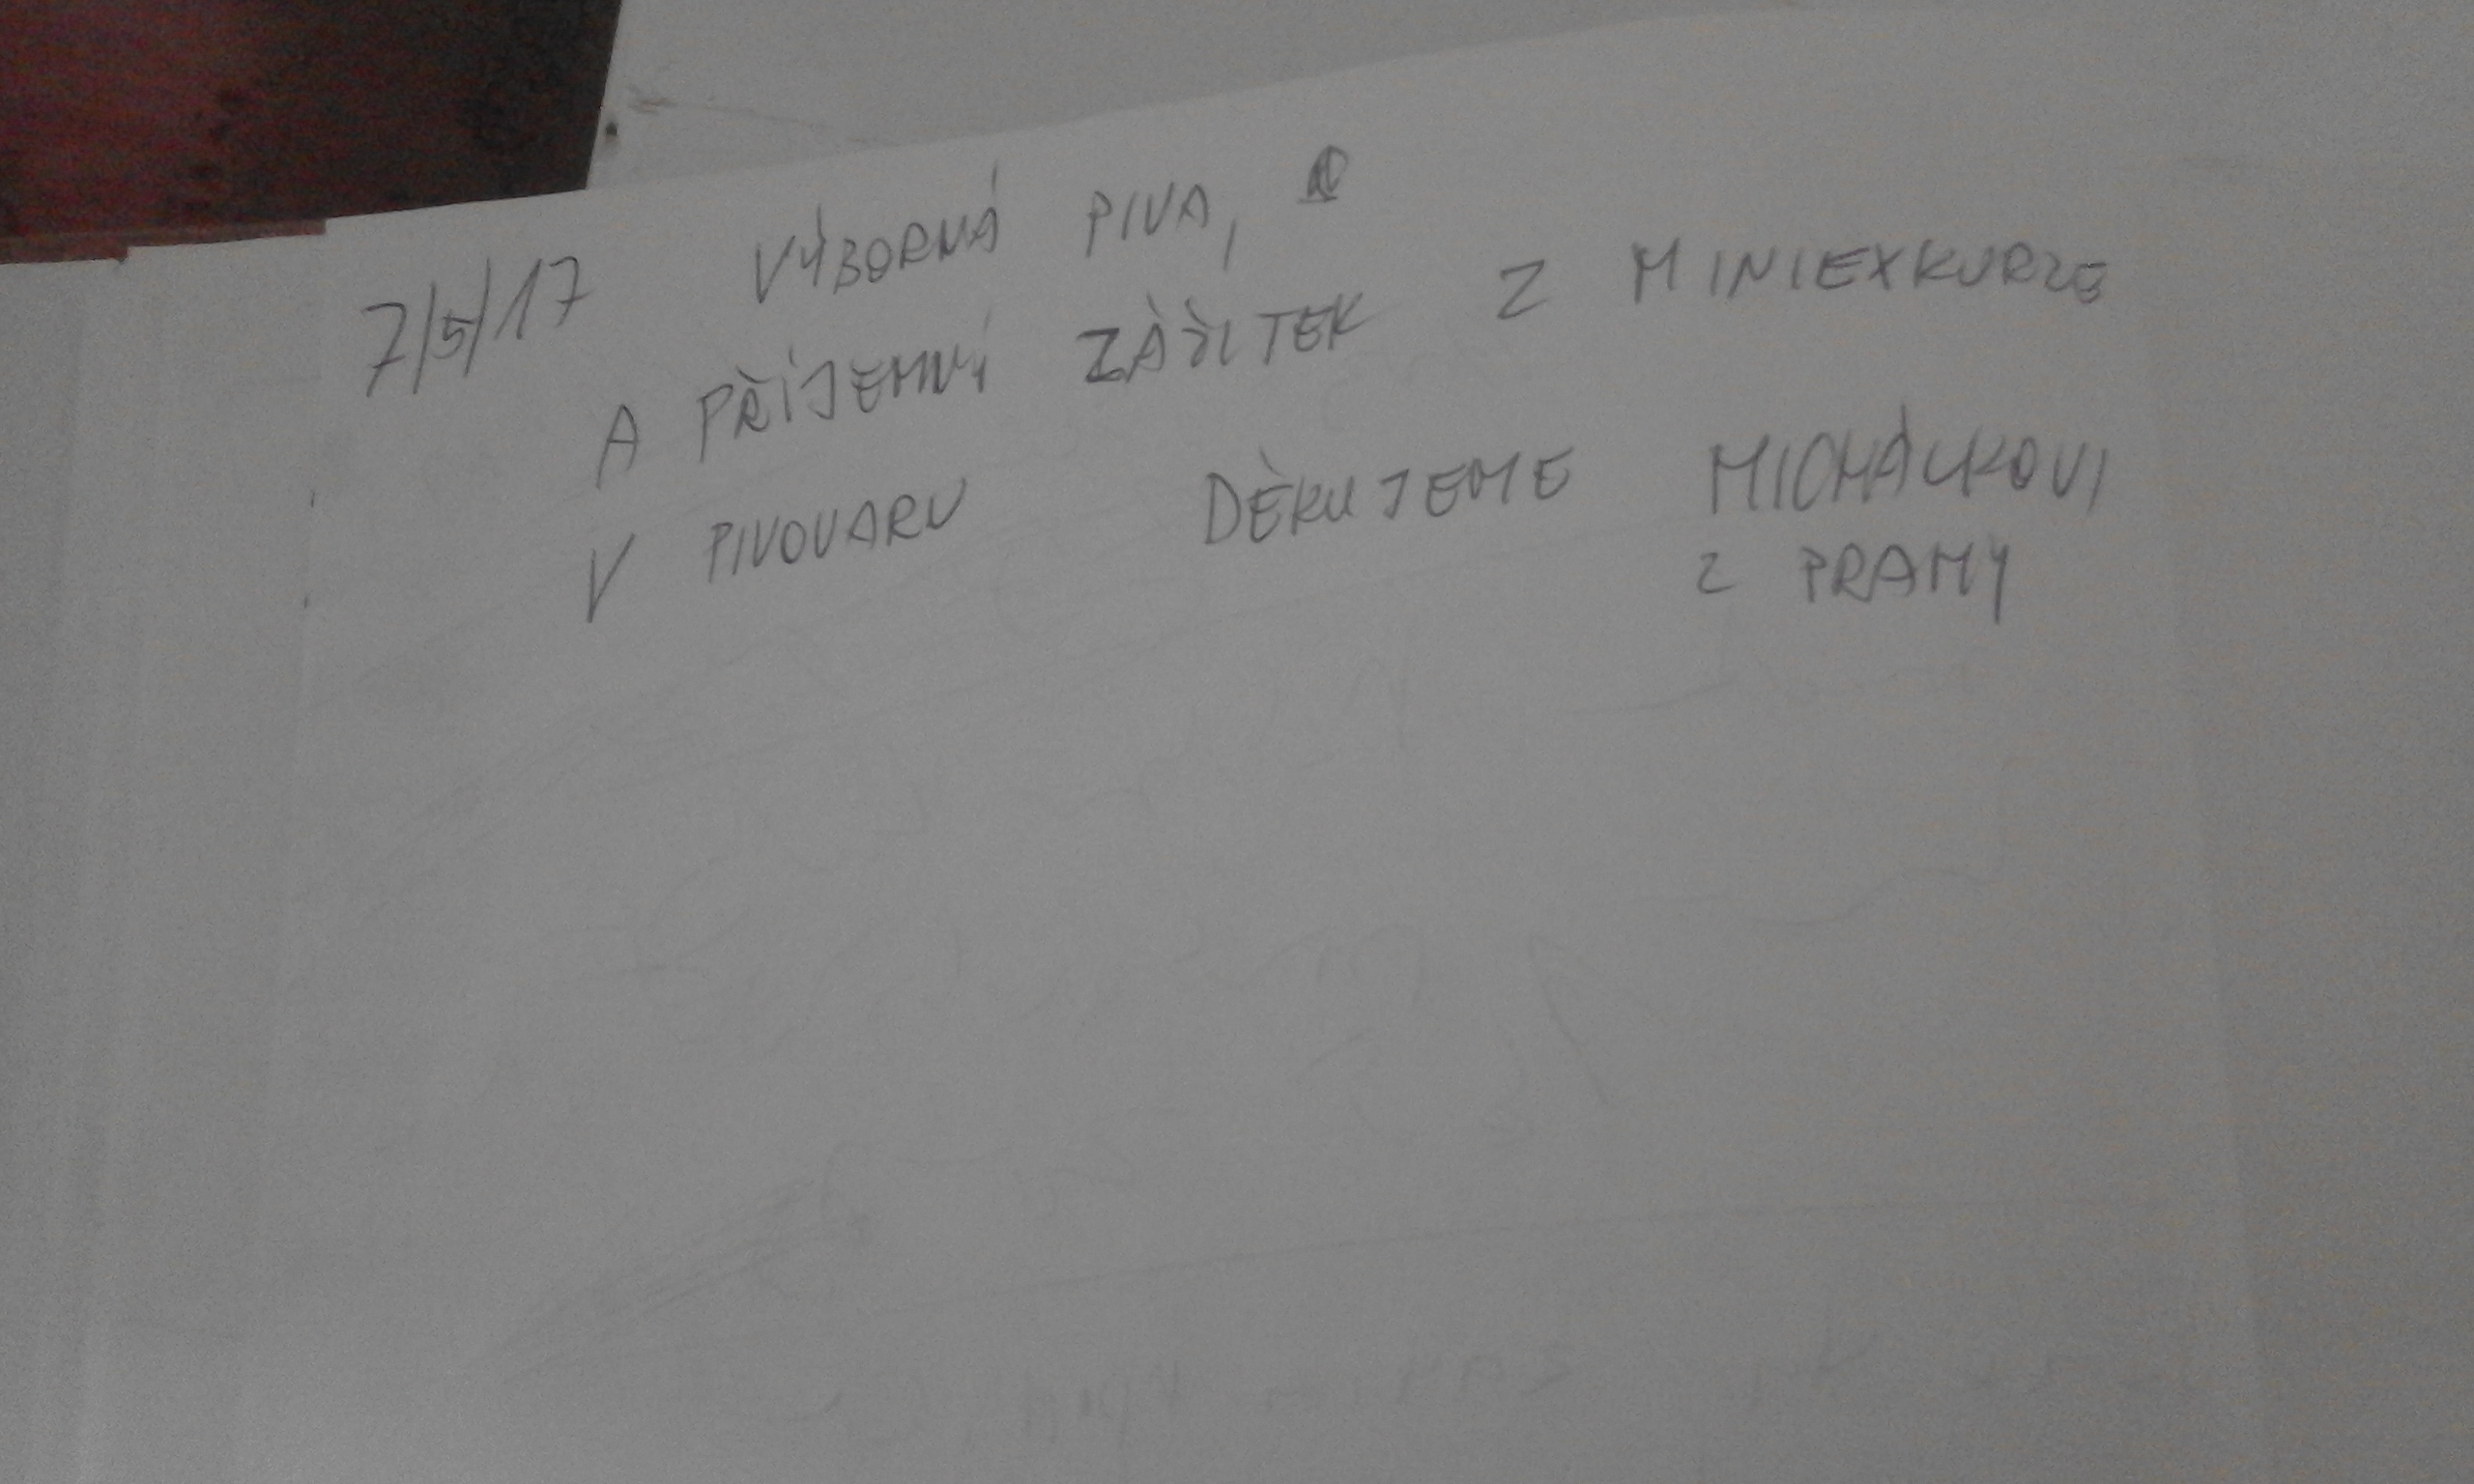 7/5/17 VÝBORNÁ PIVA,
A PŘÍJEMNÝ ZÁŽITEK Z MINIEXKURZE
V PIVOVARU DĚKUJEME MICHÁLKOVI
Z PRAHY